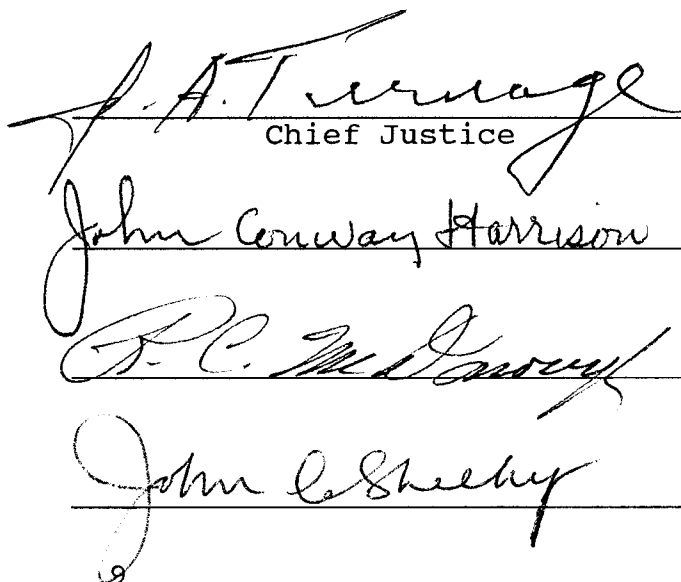 J. A. Turnage
Chief Justice
John Conway Harrison
R. C. McDonough
John C. Sheehy